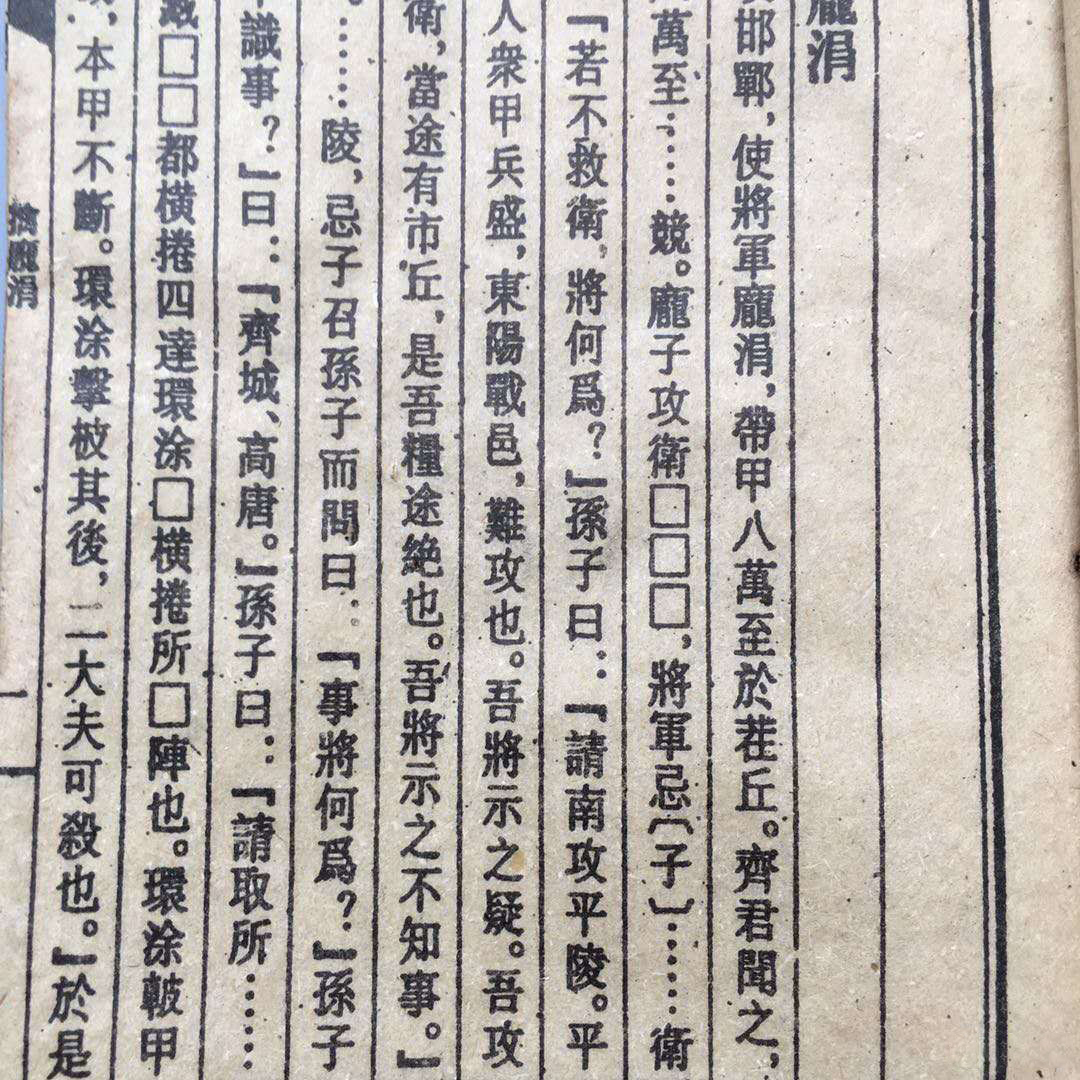 龐涓
邯鄲，使將軍龐涓，帶甲八萬至於茬丘。齊君聞之，
萬至……競。龐子攻衛□□□，將軍忌〔子〕……衛
『若不救衛，將何爲？』孫子曰：『請南攻平陵。平
人衆甲兵盛，東陽戰邑，難攻也。吾將示之疑。吾攻
衛，當途有市丘，是吾糧途絶也。吾將示之不知事。』
。……陵，忌子召孫子而問曰：『事將何爲？』孫子
識事？』曰：『齊城、高唐。』孫子曰：『請取所……
□□都橫捲四達環涂□橫捲所□陣也。環涂䡟甲
，本甲不斷。環涂擊柀其後，二大夫可殺也。』於是
擒龐涓
一